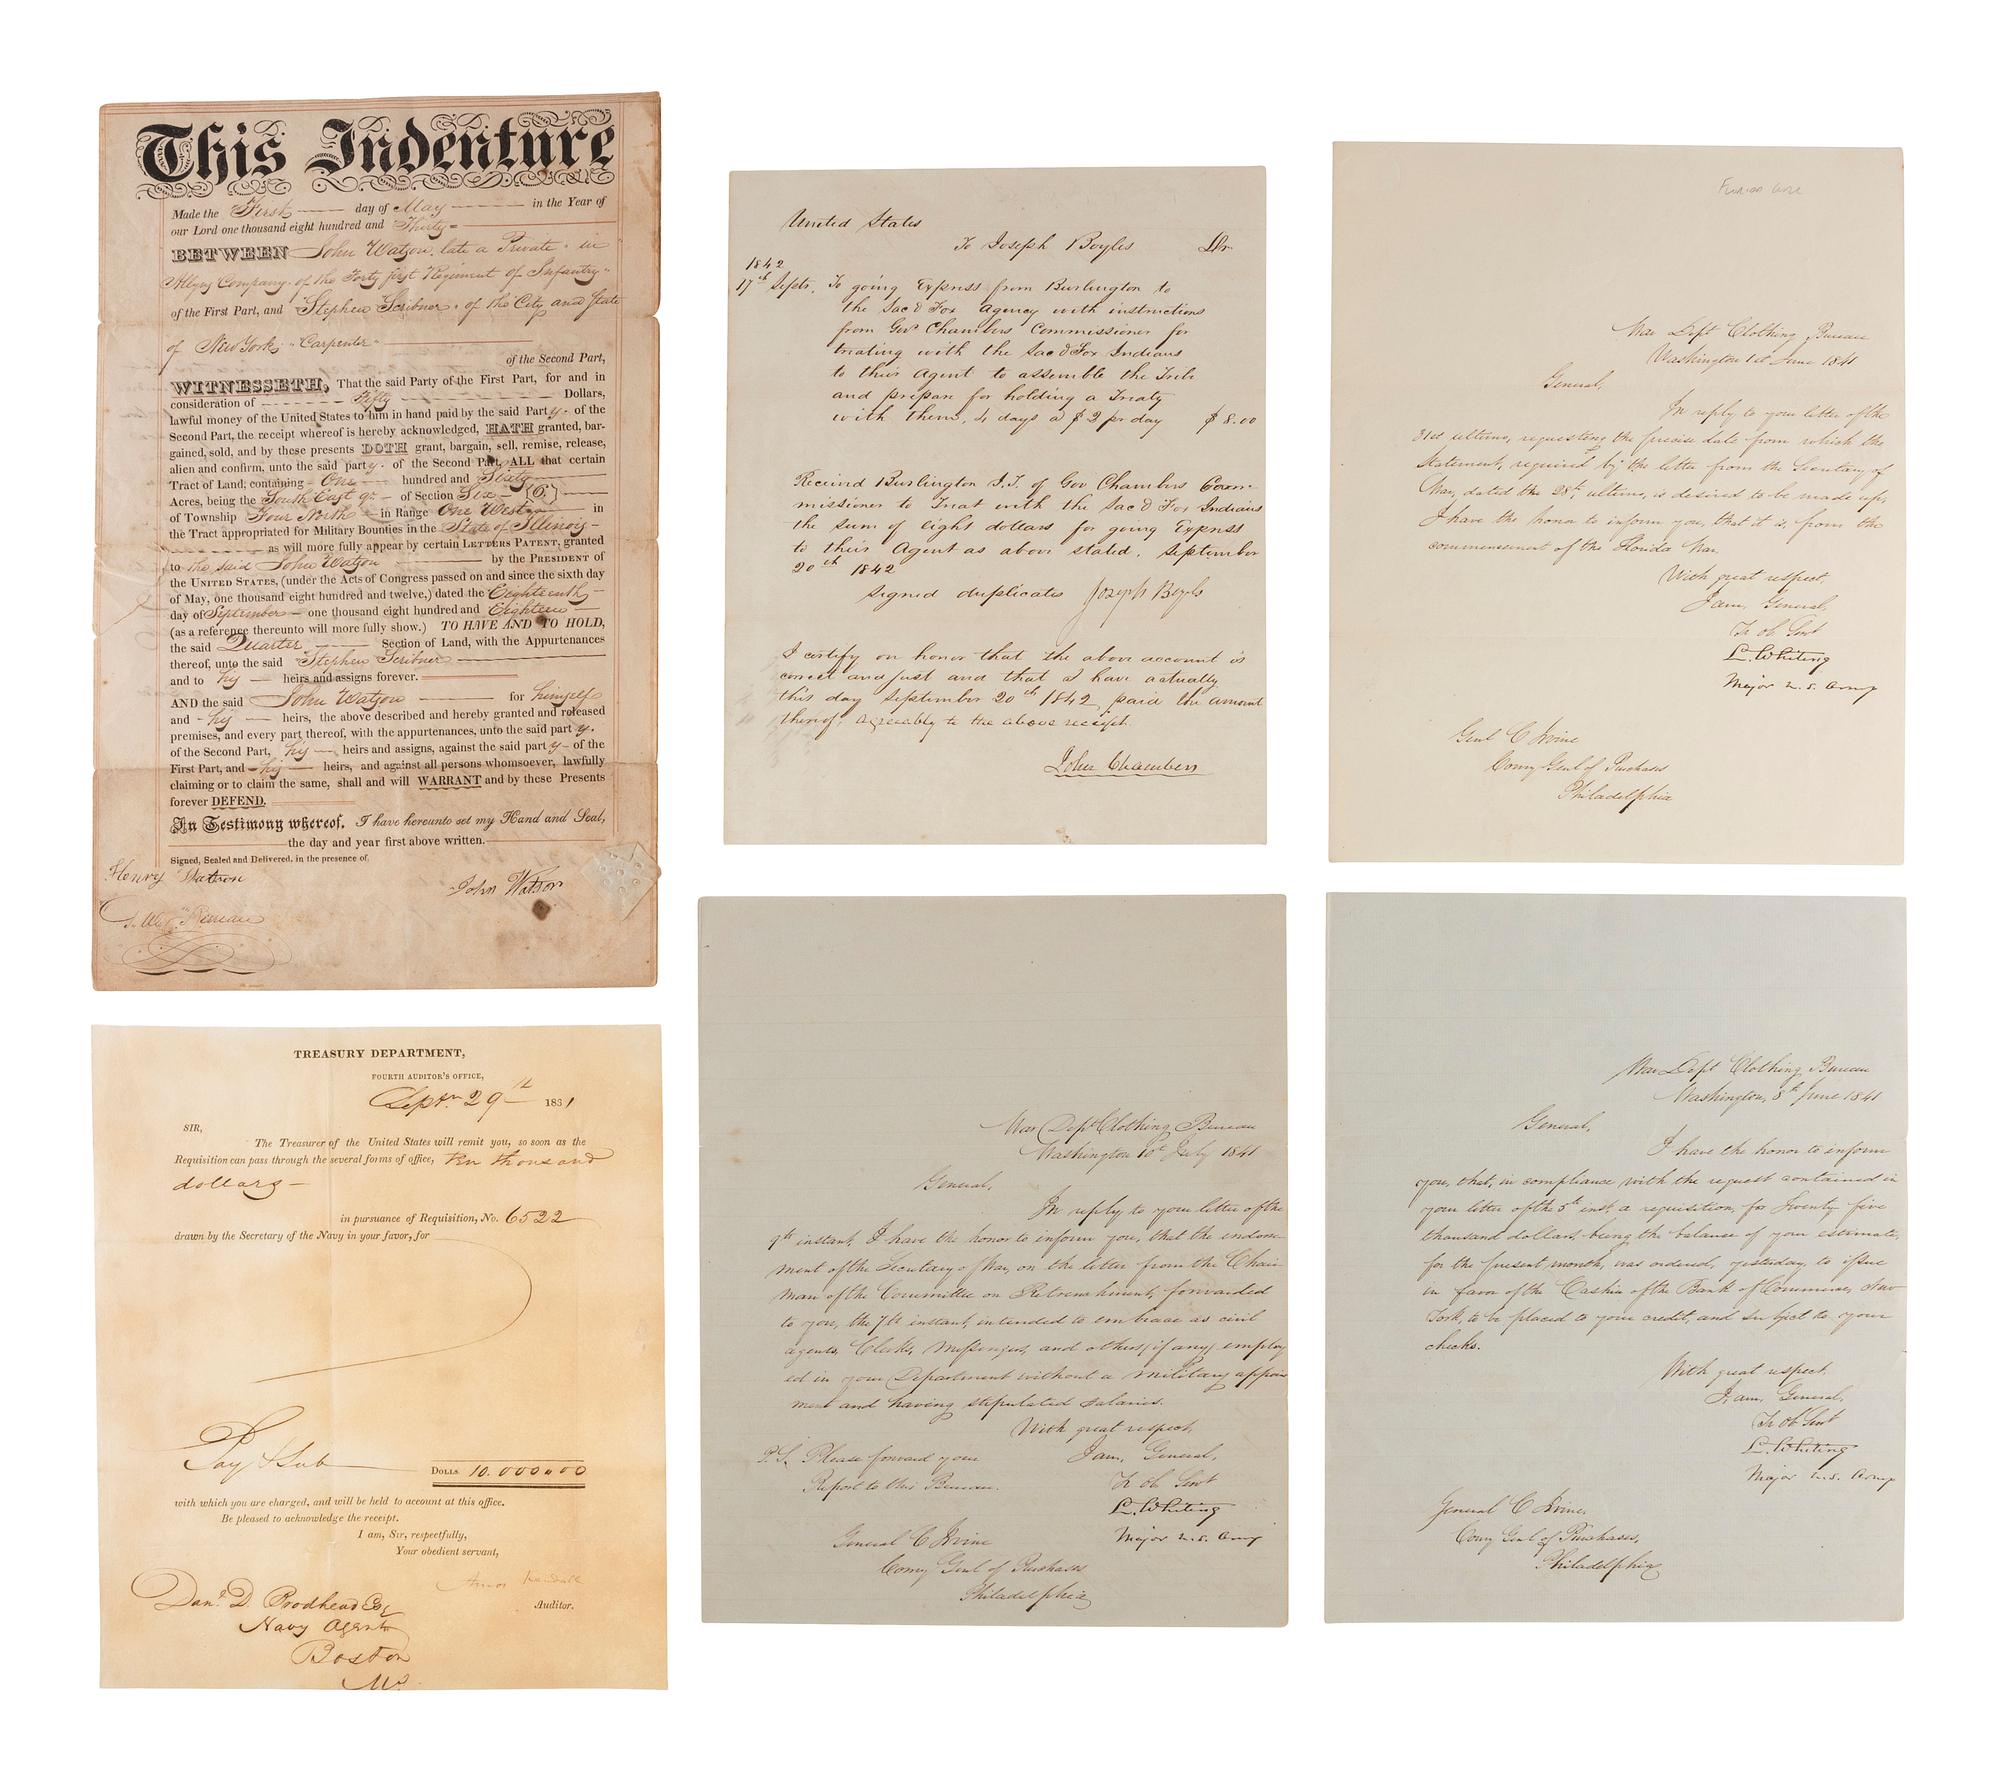 This Indenture
Made the First day of May in the Year of
our Lord one thousand eight hundred and Thirty
BETWEEN John Watson, late a Private in
Allyns Company of the Forty first Regiment of Infantry
of the First Part, and Stephen Scribner of the City and State
of New York Carpenter
of the Second Part,
WITNESSETH, That the said Party of the First Part, for and in
consideration of Fifty Dollars,
lawful money of the United States to him in hand paid by the said Party of the
Second Part, the receipt whereof is hereby acknowledged, HATH granted, bar-
gained, sold, and by these presents DOTH grant, bargain, sell, remise, release,
alien and confirm, unto the said party of the Second Part, ALL that certain
Tract of Land, containing One hundred and Sixty
Acres, being the South East qr of Section Six (6)
of Township Four North in Range One West in
the Tract appropriated for Military Bounties in the State of Illinois
as will more fully appear by certain LETTERS PATENT, granted
to the said John Watson by the PRESIDENT of
the UNITED STATES, (under the Acts of Congress passed on and since the sixth day
of May, one thousand eight hundred and twelve,) dated the Eighteenth
day of September one thousand eight hundred and Eighteen
(as a reference thereunto will more fully show.) TO HAVE AND TO HOLD,
the said Quarter Section of Land, with the Appurtenances
thereof, unto the said Stephen Scribner
and to his heirs and assigns forever.
AND the said John Watson for himself
and his heirs, the above described and hereby granted and released
premises, and every part thereof, with the appurtenances, unto the said party
of the Second Part, his heirs and assigns, against the said party of the
First Part, and his heirs, and against all persons whomsoever, lawfully
claiming or to claim the same, shall and will WARRANT and by these Presents
forever DEFEND.
In Testimony whereof, I have hereunto set my Hand and Seal,
the day and year first above written.
Signed, Sealed and Delivered, in the presence of
Henry Watson
John Watson
United States
To Joseph Boyles Dr
1842
17th Septr. To going Express from Burlington to
the Sac & Fox Agency with instructions
from Gov Chambers Commissioner for
treating with the Sac & Fox Indians
to their Agent to assemble the Tribe
and prepare for holding a Treaty
with them, 4 days a $2 pr day $8.00
Received Burlington I.T. of Gov Chambers Com-
missioner to Treat with the Sac & Fox Indians
the sum of eight dollars for going Express
to their Agent as above stated. September
20th 1842
Signed duplicates Joseph Boyls
I certify on honor that the above account is
correct and just and that I have actually
this day September 20th 1842 paid the amount
thereof agreeably to the above receipt.
John Chambers
War Dept Clothing Bureau
Washington 1st June 1841
General,
In reply to your letter of the
31st ultimo, requesting the precise date from which the
Statement, required by the letter from the Secretary of
War, dated the 28th ultimo, is desired to be made up,
I have the honor to inform you, that it is, from the
commencement of the Florida War.
With great respect,
I am, General,
Yr ob Servt
L. Whiting
Major U.S. Army
Genl C Irvine
Comy Genl of Purchases
Philadelphia
TREASURY DEPARTMENT,
FOURTH AUDITOR'S OFFICE,
Septr 29th 1831
SIR,
The Treasurer of the United States will remit you, so soon as the
Requisition can pass through the several forms of office, Ten thousand
dollars
in pursuance of Requisition, No. 6522
drawn by the Secretary of the Navy in your favor, for
Pay & Sub
DOLLS. 10.000.00
with which you are charged, and will be held to account at this office.
Be pleased to acknowledge the receipt.
I am, Sir, respectfully,
Your obedient servant,
Amos Kendall
Auditor.
Danl. D. Brodhead Esq
Navy Agent
Boston
Ms.
War Dept Clothing Bureau
Washington 10th July 1841
General,
In reply to your letter of the
9th instant, I have the honor to inform you, that the endorse-
ment of the Secretary of War, on the letter from the Chair-
man of the Committee on Retrenchment, forwarded
to you, the 7th instant, intended to embrace as civil
agents, Clerks, Messengers, and others, (if any) employ
ed in your Department without a military appoint
ment and having stipulated salaries.
With great respect,
I am, General,
P.S. Please forward your
Report to this Bureau.
Yr ob Servt
L. Whiting
Major U.S. Army
General C Irvine
Comy Genl of Purchases
Philadelphia
War Dept Clothing Bureau
Washington, 8th June 1841
General,
I have the honor to inform
you, that, in compliance with the request contained in
your letter of the 5th inst, a requisition, for Twenty five
thousand dollars, being the balance of your estimate,
for the present month, was ordered, yesterday, to issue
in favor of the Cashier of the Bank of Commerce, New
York, to be placed to your credit, and subject to your
checks.
With great respect,
I am, General,
Yr ob Servt
L. Whiting
Major U.S. Army
General C Irvine,
Comy Genl of Purchases,
Philadelphia